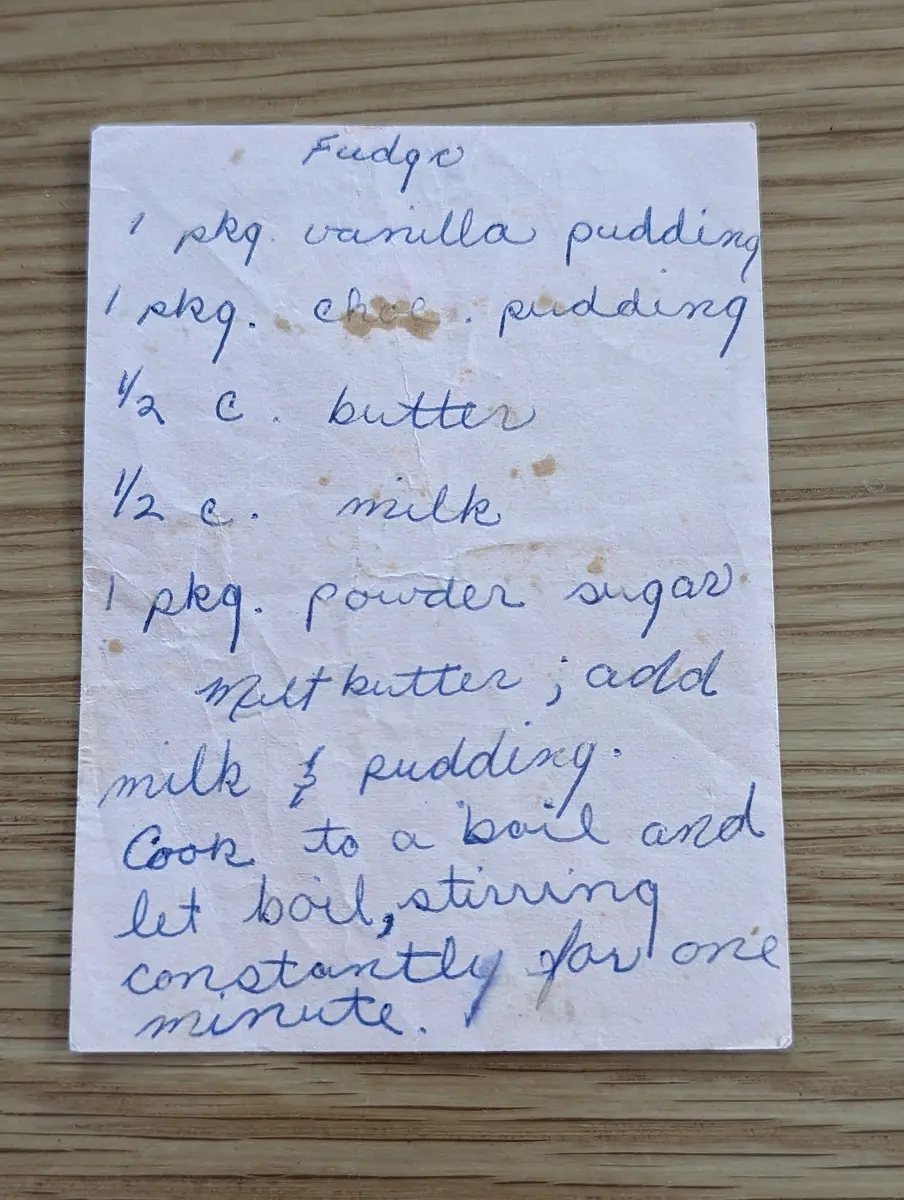 Fudge
1 pkg. vanilla pudding
1 pkg. choc. pudding
1/2 c. butter
1/2 c. milk
1 pkg. powder sugar
Melt butter; add
milk & pudding.
Cook to a boil and
let boil, stirring
constantly for one
minute.